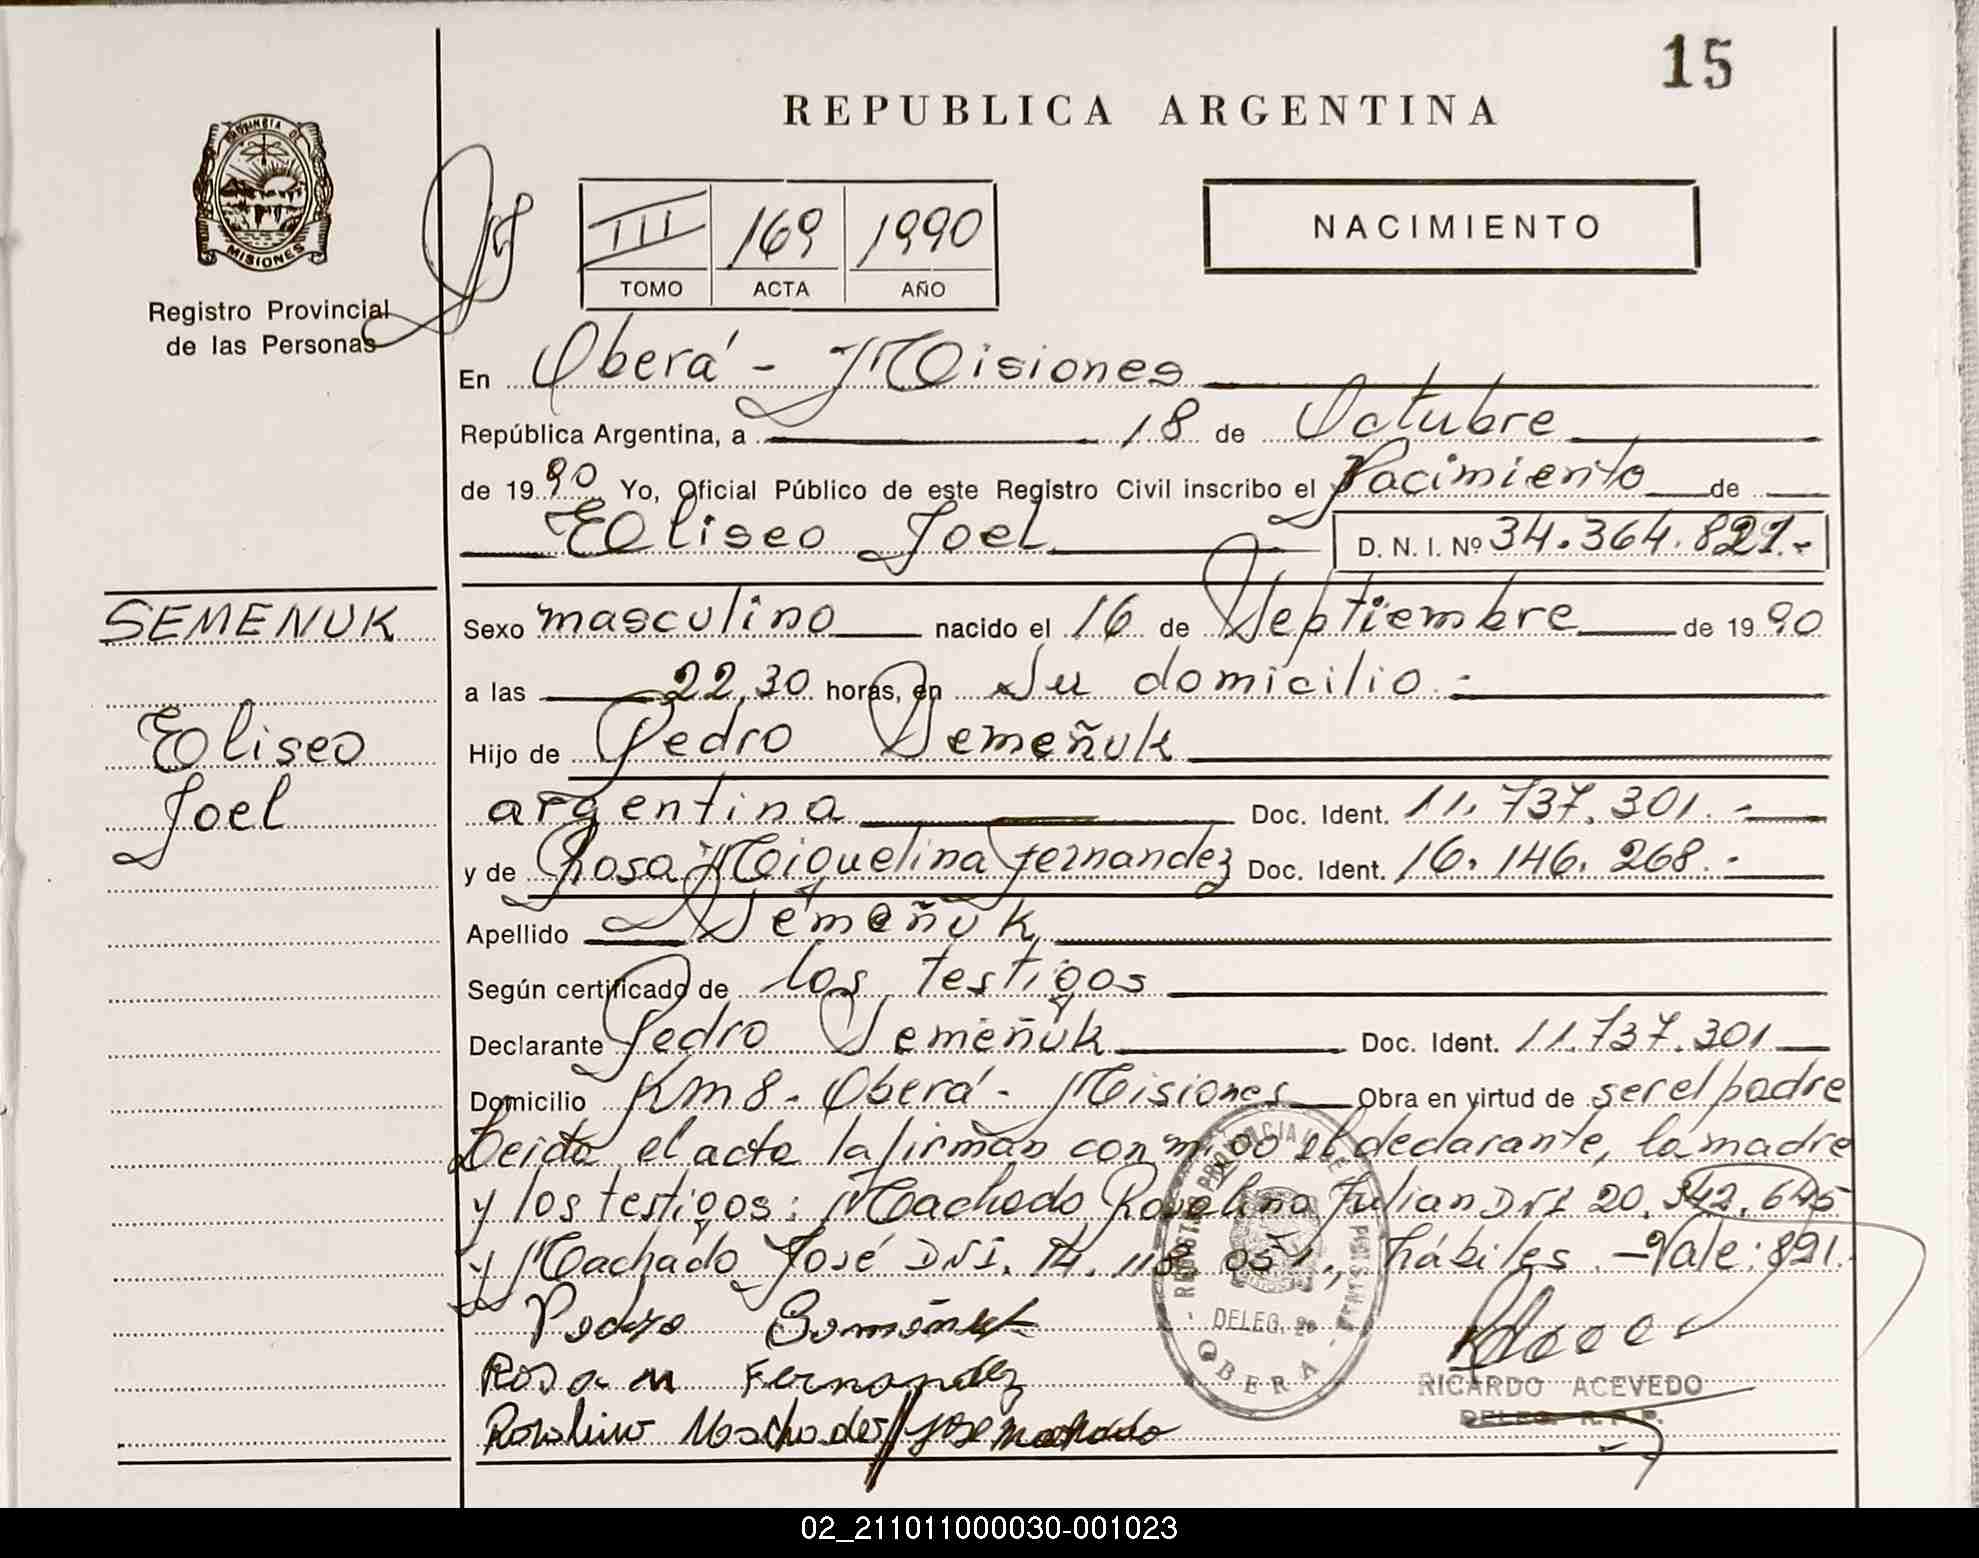 15
REPUBLICA ARGENTINA
PROVINCIA DE
MISIONES
Registro Provincial
de las Personas
III 169 1990
TOMO ACTA AÑO
NACIMIENTO
En Oberá - Misiones
República Argentina, a 18 de Octubre
de 1990 Yo, Oficial Público de este Registro Civil inscribo el Nacimiento de
Eliseo Joel D. N. I. Nº 34.364.821.-
SEMENUK
Eliseo
Joel
Sexo masculino nacido el 16 de Septiembre de 1990
a las 22,30 horas, en Su domicilio.-
Hijo de Pedro Semeñuk
argentina Doc. Ident. 11.737.301.-
y de Rosa Miquelina Fernandez Doc. Ident. 16.146.268.-
Apellido Semeñuk
Según certificado de los testigos
Declarante Pedro Semeñuk Doc. Ident. 11.737.301
Domicilio Km 8 - Oberá - Misiones Obra en virtud de ser el padre
Leida el acta la firman con migo el declarante, la madre
y los testigos: Machado Rovelino Julian DNI 20.342.645
y Machado José DNI. 14.118.051., hábiles. - Vale: 821.
Pedro Semeñuk
Rosa M Fernandez
Rovelino Machado José Machado
REGISTRO PROVINCIAL DE LAS PERSONAS
DELEG.
OBERA
RICARDO ACEVEDO
DELEG. R.P.P.
02_211011000030-001023